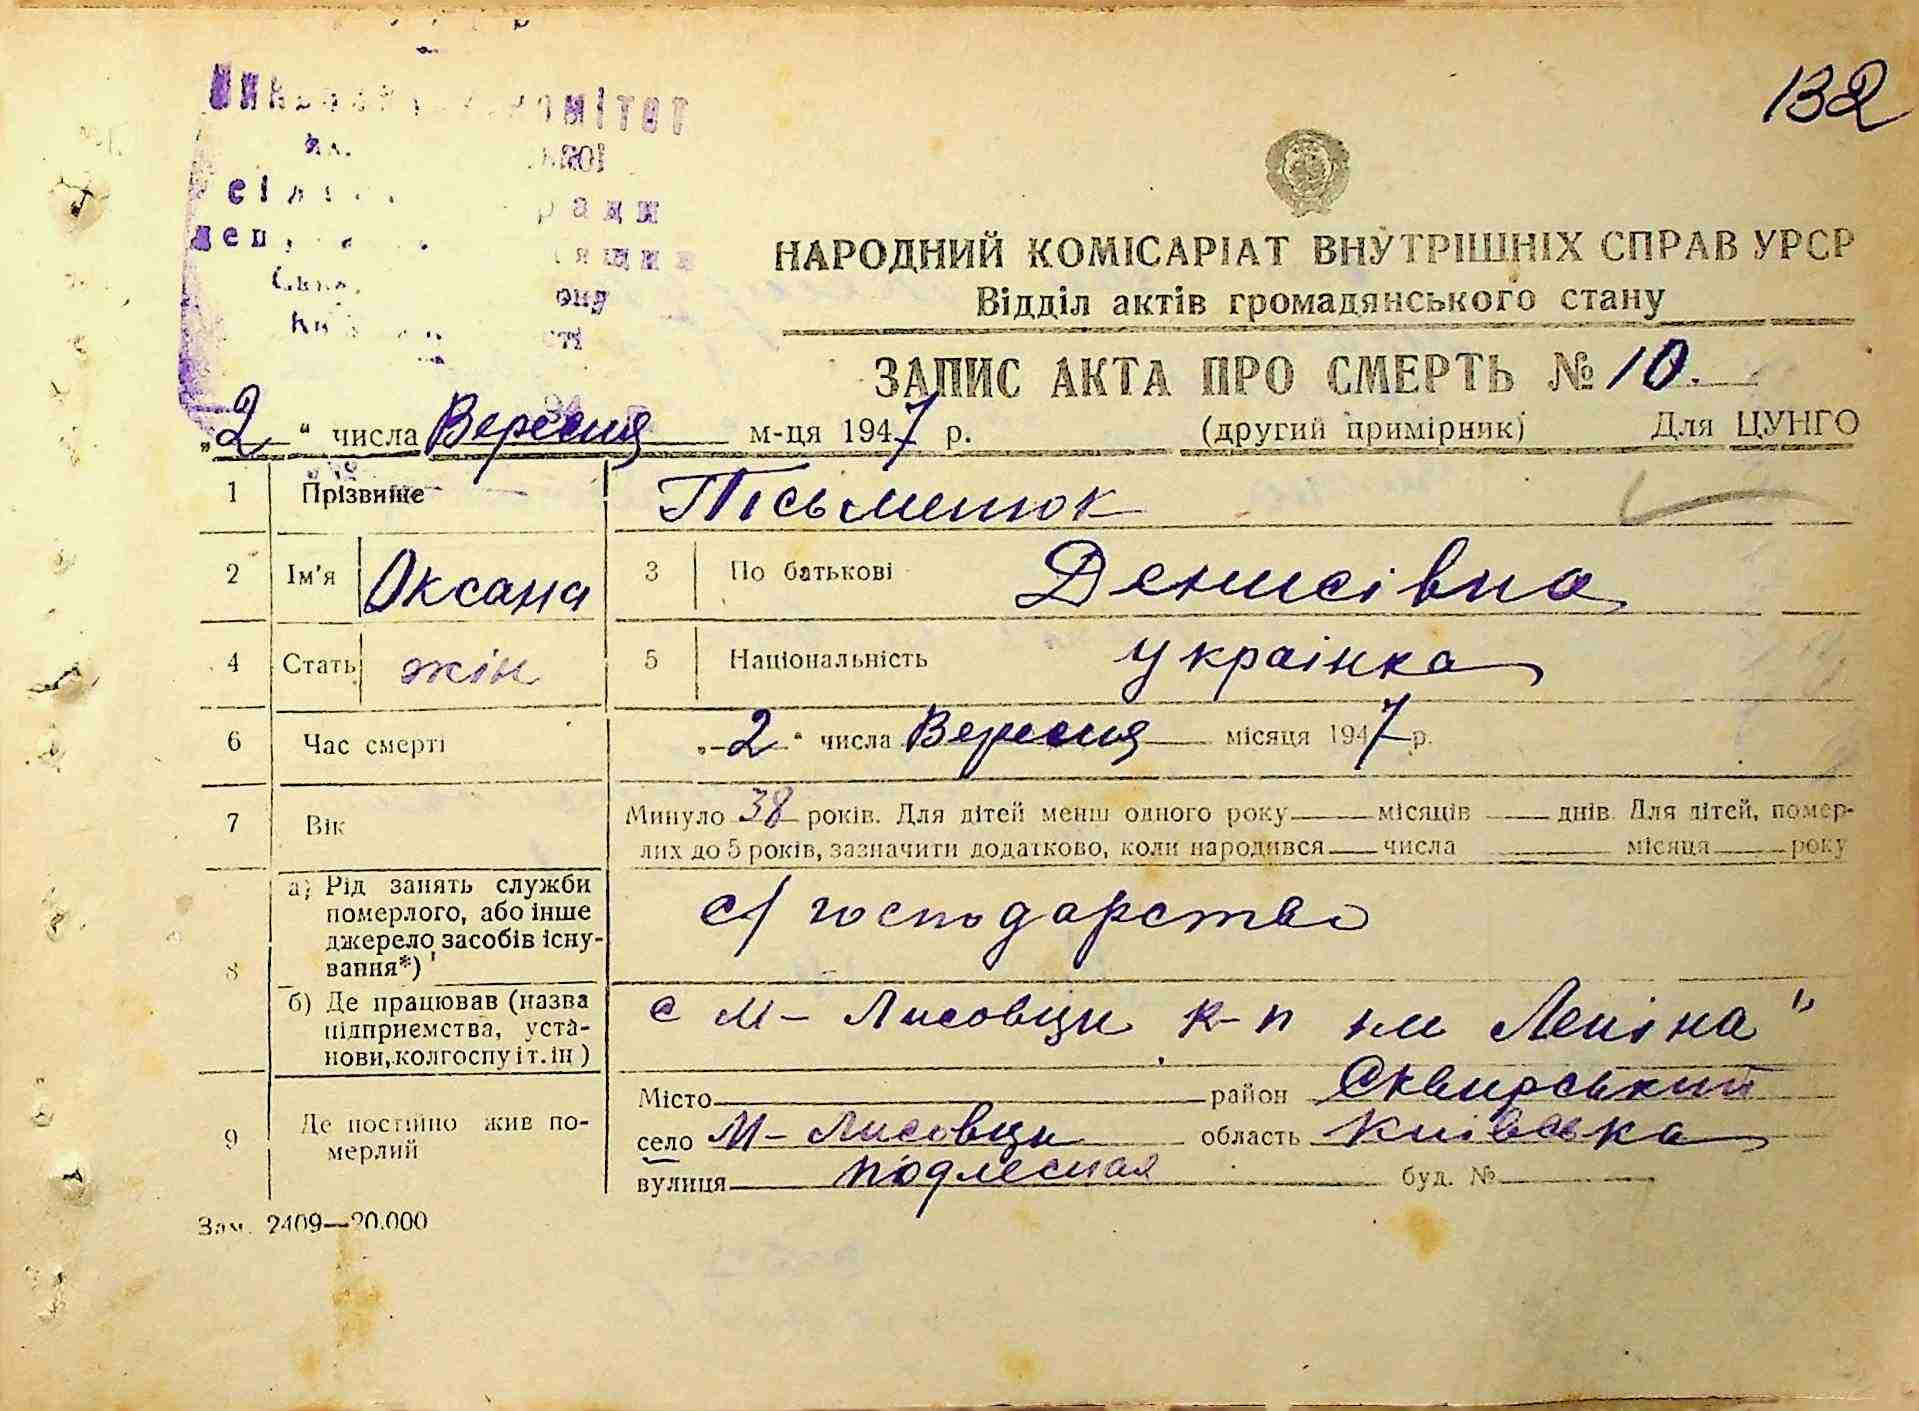 132
НАРОДНИЙ КОМІСАРІАТ ВНУТРІШНІХ СПРАВ УРСР
Відділ актів громадянського стану
ЗАПИС АКТА ПРО СМЕРТЬ № 10.
„2“ числа Вересня м-ця 1947 р. (другий примірник) Для ЦУНГО
1 Прізвише Письменюк
2 Ім'я Оксана 3 По батькові Денисівна
4 Стать жін 5 Національність українка
6 Час смерті „2“ числа Вересня місяця 1947 р.
7 Вік Минуло 38 років. Для дітей менш одного року місяців днів. Для дітей, помер-
лих до 5 років, зазначити додатково, коли народився числа місяця року
8 а) Рід занять служби
померлого, або інше
джерело засобів існу-
вання*)
с/господарство
б) Де працював (назва
підприємства, уста-
нови, колгоспу і т. ін)
с М-Лисовци к-п им Леніна"
9 Де постійно жив по-
мерлий
Місто район Сквирський
село М-Лисовци область Київська
вулиця подлесная буд. №
Зам. 2409—20.000